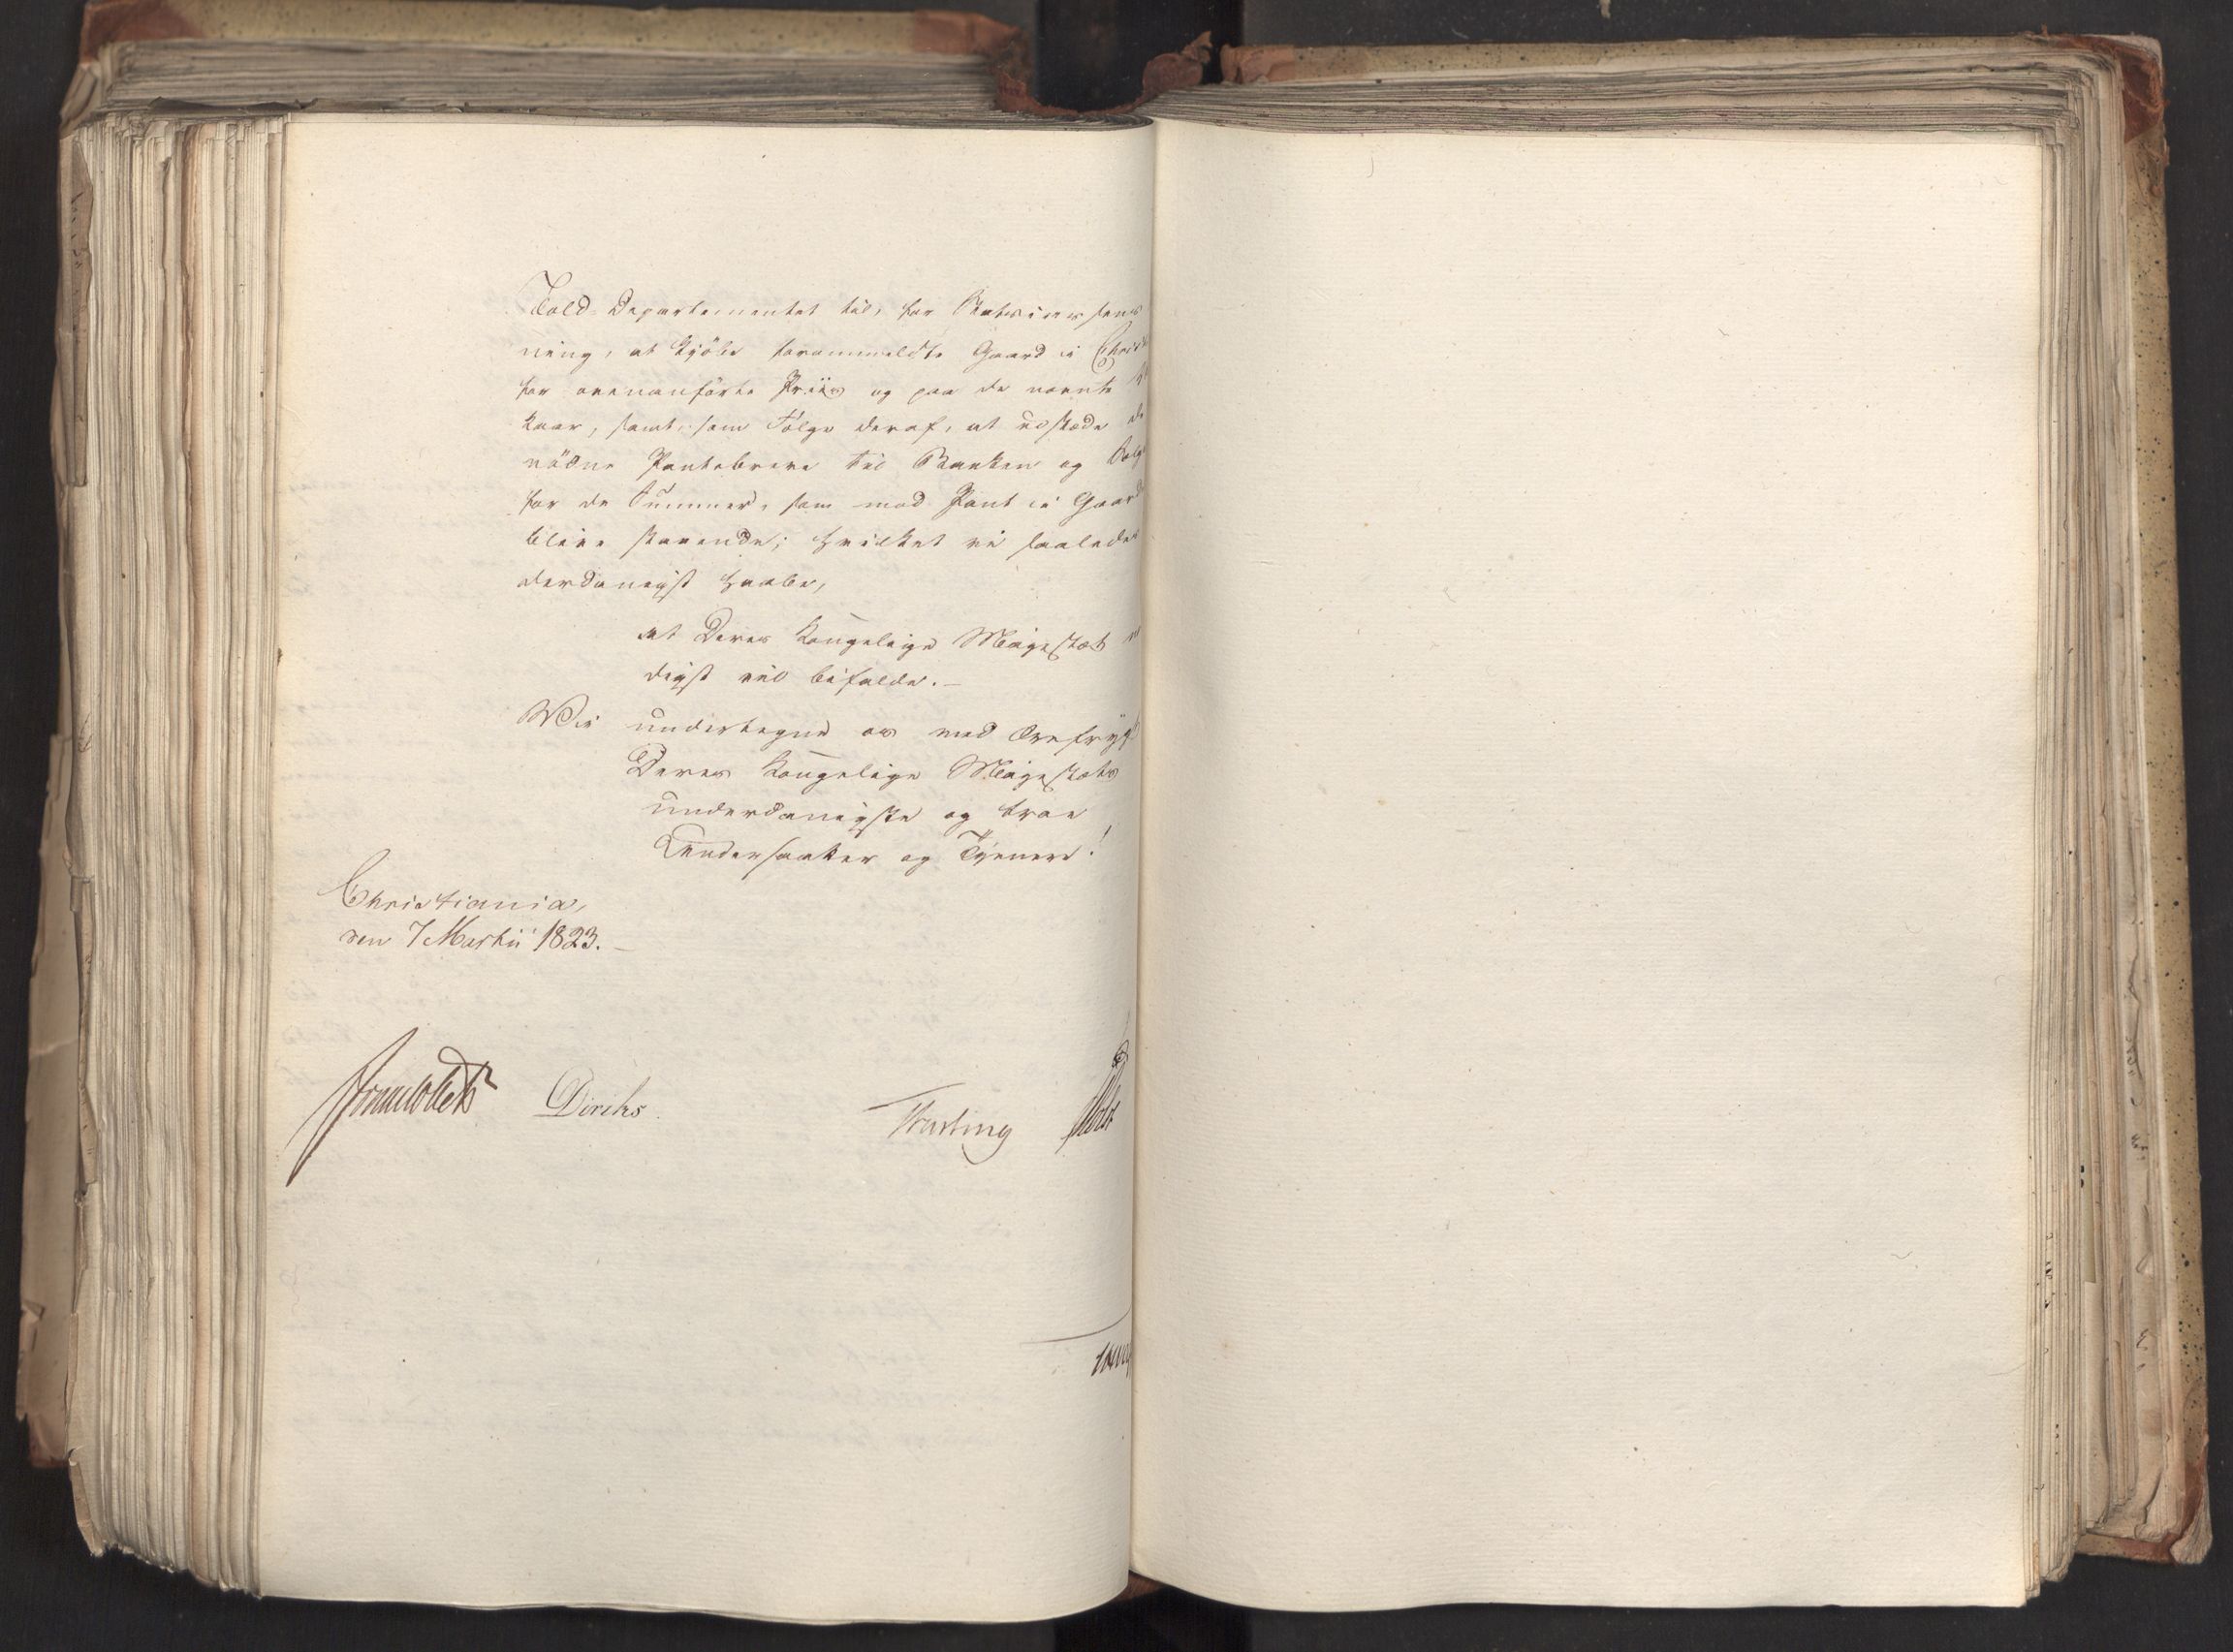 Told-Departementet til, for Statskassens
ning, at kjöbe foranmeldte Gaard i Chris
for ovenanförte Priis og paa de nævnte
kaar, samt, som Fölge deraf, at udstæde de
nödne Pantebreve til Banken og Sælg
for de Summer, som mod Pant i Gaard
blive staaende; hvilket vi saaledes
derdanigst haabe,
at Deres Kongelige Majestæt
digst vil bifalde.-
Wii undertegne os med Ærefrygt
Deres Kongelige Majestæts
underdanigste og troe
Undersaatter og Tjenere!
Christiania,
den 7 Martii 1823.-
Diriks
Krefting Holst